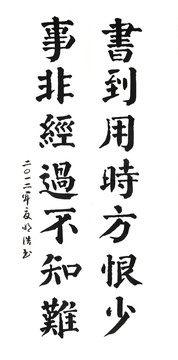 書到用時方恨少
事非經過不知難
二〇一二年夏明浩书